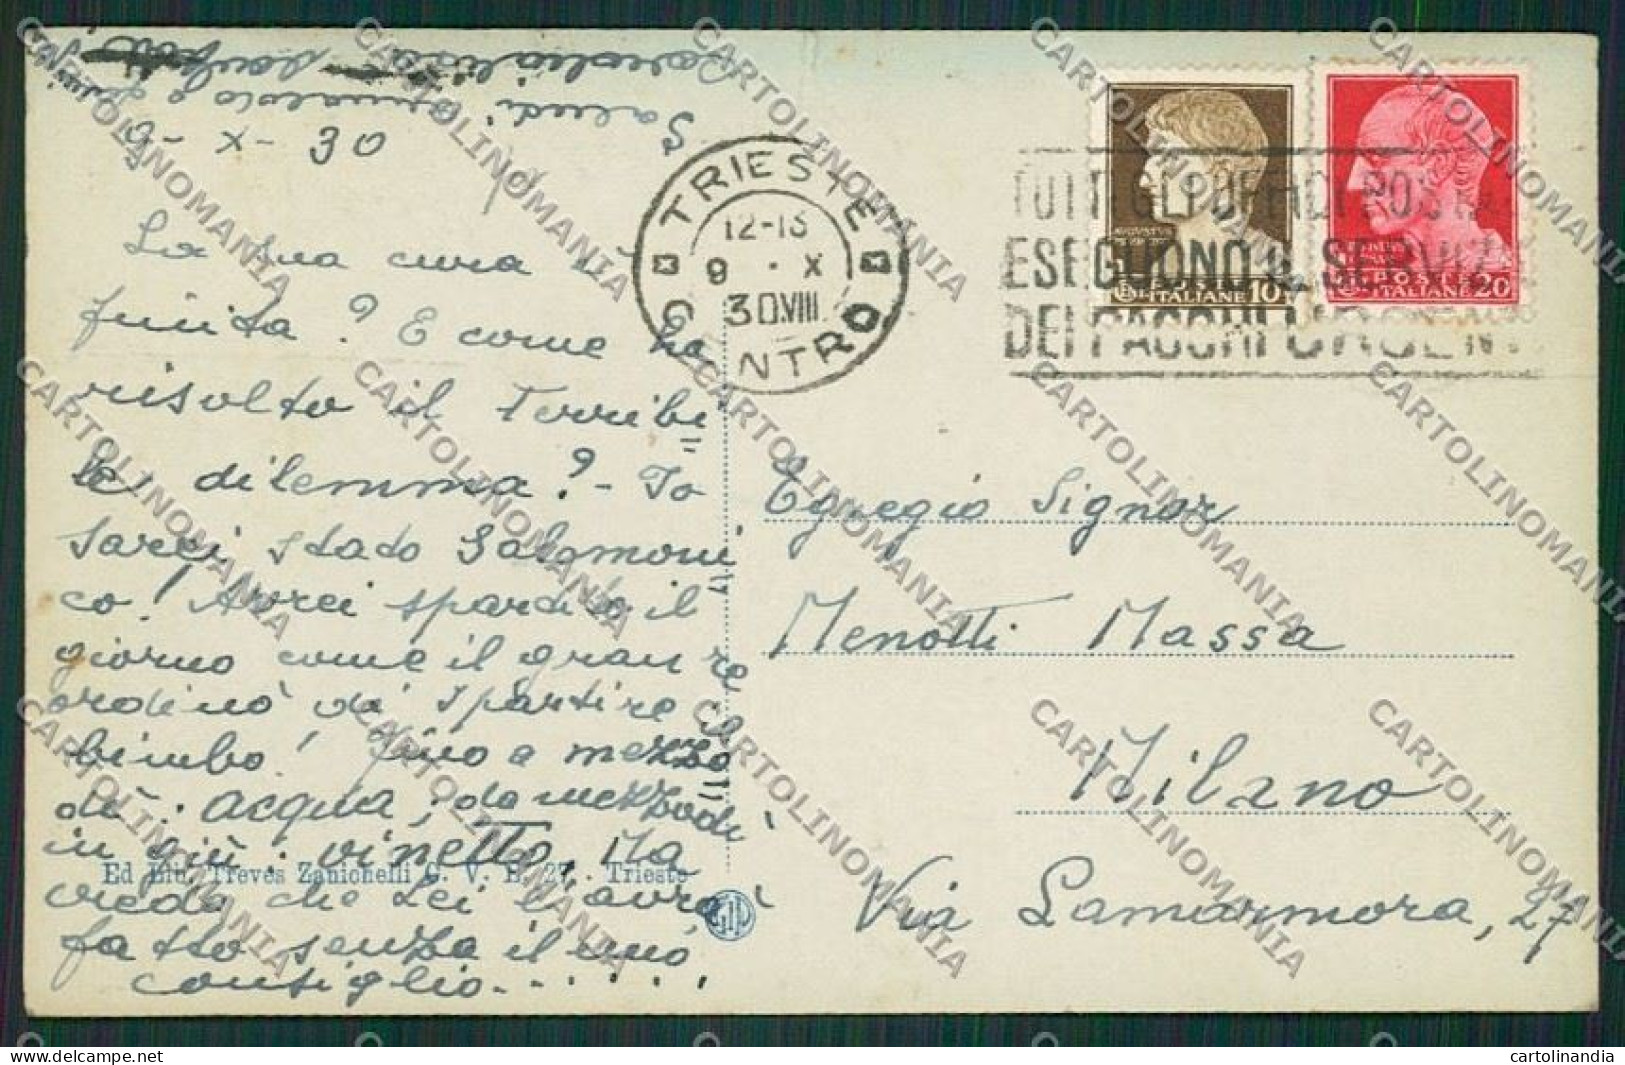 9-X-30
La sua cura è
finita? E come ha
risolto il Terribi
le dilemma? - Io
sarei stato Salomoni
co! Avrei spartito il
giorno come il gran re
ordinò di spartire il
bimbo! Fino a mezzo
dì: acqua; da mezzodì
in giù: vinetto. Ma
vedo che Lei l'avrà
fatto senza il mio
consiglio......
Saluti
TRIESTE
12-13
9 · X
30.VIII
CENTRO
TUTTI GLI UFFICI POSTALI
ESEGUONO IL SERVIZIO
DEI PACCHI URGENTI
AUGUSTUS
POSTE
ITALIANE 10
POSTE
ITALIANE 20
Egregio Signor
Menotti Massa
Milano
Via Lamarmora, 27
Ed Lib. Treves Zanichelli C. V. E. 27 - Trieste
CARTOLINOMANIA
cartolinandia